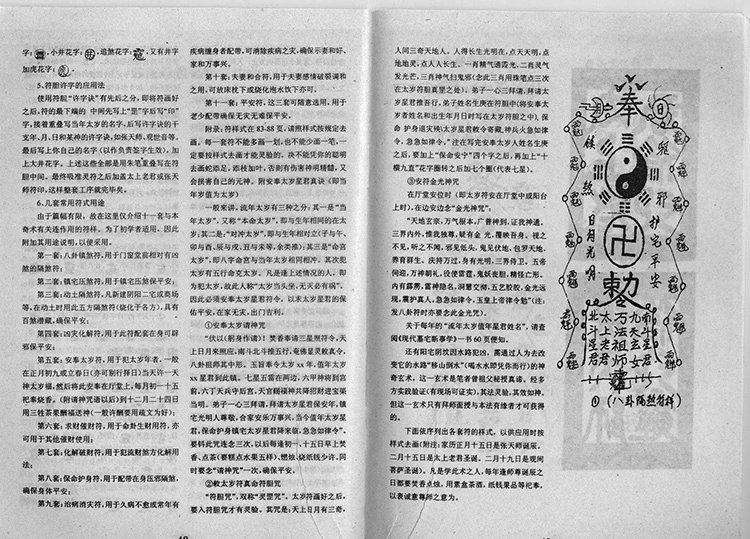 字:,小井花字:,追煞花字:,又有井字
加虎花字:。
5、符胆许字的应用法
使用符胆"许字诀"有先后之分,即将符画好
之后,符的最下端的 中间先写上"罡"字后写"印"
字,接着重叠写当年太岁的名字,后写许字诀的干
支年、月、日和某神的许字诀,如张天师、观世音等。
最后写上你自己的名字(以作负责签字生效),加
上大井花字。上述这些全部是用朱笔重叠写在符
胆中间。最终吸准灵符之后加盖太上老君或张天
师符印,这样整套工序就完毕矣。
6、几套常用符式用途
由于篇幅有限,故在这里仅介绍十一套与本
奇术有关连作用的符样。为了初学者适用,因此
附加其用途说明,以便采用。
第一套:八卦镇煞符,用于门窗堂前相对有凶
煞的隔煞符;
第二套:镇宅压煞符,用于镇宅压煞保平安;
第三套:动土隔煞符,凡新建阴阳二宅或商场
等,在动土时用此五方隔煞符(烧化于各方),具有
百煞潜藏,确保平安;
第四套:凶灾化解符,用于此符配套在身可辟
邪保平安;
第五套:安奉太岁符,用于犯太岁年者,一般
在正月初九或立春日(亦可别行择日)当天许一天
神太岁福,然后将此安奉在厅堂上,每月初一十五
祀奉烧香。(附请神吃语以后)到十二月二十四日
用三牲茶果酬福送神(一般许酬要用成文为好);
第六套:求财催财符,用于命卦生财用符,亦
可用于其他催财使用;
第七套:化解破财符,用于犯疏财煞方化解用
法;
第八套:保命护身符,用于配带在身压邪隔煞,
确保身体平安;
第九套:治病消灾符,用于久病不愈或常年有
疾病缠身者配带,可消除疾病之灾,确保示妻和好、
家和万事兴。
第十套:夫妻和合符,用于夫妻感情破裂调和
之用,可放床枕下或烧化泡水饮下亦可。
第十一套:平安符,这三套可随意选用,用于
老少配带确保无灾无难保平安。
附录:符样式在83-88页,请照样式按规定去
画。每一套符不能多画一划,也不能少画一笔,一
定要按样式去画才能灵验的。决不能凭你的聪明
去画蛇添足,添枝加叶,否则有伤害神明情缘,又
会损害自己的元神。附安奉太岁星君真诀(即当
年值年为太岁)
一般来讲,流年太岁有三种之分:其一是"当
年太岁",又称"本命太岁",即与生年相同的在太
岁;其二是:"对冲太岁",即与生年相对立(子与午、
卯与酉、辰与戌、丑与未等,余类推);其三是"命宫
太岁",即八字命宫与当年太岁相同相冲。其次犯
太岁有五行命克太岁。凡是逢上述情况的人,即
为犯太岁,故此人称"太岁当头坐,无灾必有祸"。
因此必须安奉太岁星君符令。以求太岁星君的保
佑,在家无灾,出门吉利。
①安奉太岁请神咒
"伏以(躬身作请):焚香奉请三星照符令,天
上日月来照应,南斗北斗推五行,奄佛显灵敕真令,
八卦祖师其中形。玉旨奉令太岁xx年,值年太岁
xx星君到此镇。七星五雷在两边,六甲神将到宫
前,六丁天兵守后宫,天官赐福神共降招财进宝策
当明。弟子一心三拜请,拜请太岁星君保安年,镇
宅光明人尊敬,合家安乐万事兴,当今值年太岁星
君,保命护身镇宅太岁星君降来临,急急如律令"。
要转此咒连念三次,以后每逢初一、十五日早上焚
香、点茶(要糕点水果五样),燃烛、烧纸钱少许。同
时要念"请神咒"一次,确保平安。
②敕太岁符真命符胆咒
"符胆咒",双称"灵罡咒"。太岁符画好之后,
要入符胆咒才有灵验。其咒是:天上日月有三奇,
人间三奇天地人。人得长生光明在,点天天明,点
地地灵,点人人长生。一肖精气通雷光,二肖灵气
发光芒,三肖神气扫鬼邪(念此三肖用珠笔点三次
在太岁符胆真星之处)。弟子一心三拜请,拜请太
岁星君推吾行,弟子姓名生庚在符胆中(将安奉太
岁者姓名和出生年月日时写在太岁符胆之中),保
命 护身退灾殃(太岁星君敕令寄藏,神兵火急如律
令,急急如律令)。"注在写完安奉太岁人姓名生庚
之后,要加上"保命安宁"四个字之后,再加上"十
横九直"花字圈转之后加七个圈(代表七星)。
③安符金光神咒
在厅堂安位时(即太岁符安在厅堂中或阳台
上时),在边安边念"金光神咒"。
"天地玄宗,万气根本,广普神到,证我神通。
三界内外,惟我独尊,疑有金 光,覆映吾身。视之
不见,听之不闻,邪见低头,鬼见伏地,包罗天地,
养育群生。庆持万过,身有光明,三界侍卫。五帝
伺迎,万神朝礼,役使雷霆,鬼妖丧胆,精怪亡形。
内有霹雳,雷神隐名,洞慧交彻,五艺胶胶,金光远
现,震护真人,急急如律令,玉皇上帝律令勉"(注:
发八卦符时亦要念此金光咒)。
关于每年的"流年太岁值年星君姓名",请查
阅《现代墓宅断事学》一书60页便知。
还有阳宅阴坟因水路犯凶,需通过人为去改
变它的水路"移山倒水"(喝水水即凭你而行)的神
奇玄术,这一玄术是笔者曾祖父秘授真谛。经多
方实践验证(有现场可证实),其法灵验,其效如神。
但这一玄术只有拜师面授与本法有缘者才可获得
的。
下面依序列出各套符的样式,以供应用时按
样式去画(附:家历正月十五日是张天师诞辰。
二月十五日是太上老君圣诞。二月十九日是观间
菩萨圣诞)。凡是学此术之人,每年逢师尊诞辰之
日都要焚香点烛,用素盒茶酒,纸钱果品等祀奉,
以表诚意尊师之意为。
奉
镇煞
鬼邪
日月光明
护宅平安
卍
敕令
北斗星君
太上老君
万法祖师
九天玄女
南斗星君
①(八卦隔煞符样)
48